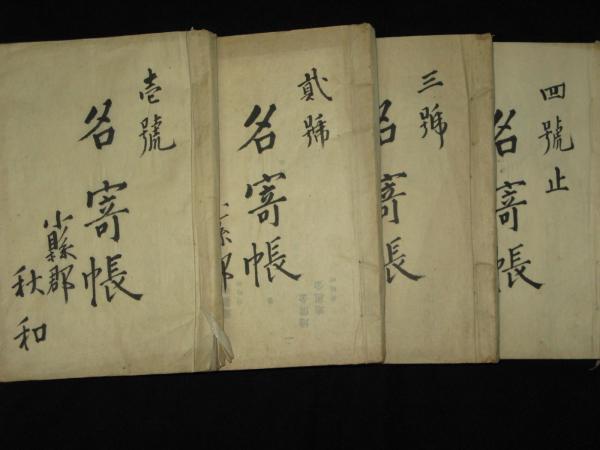 壱號
名寄帳
小縣郡
秋和
貮號
名寄帳
三號
名寄帳
四號止
名寄帳